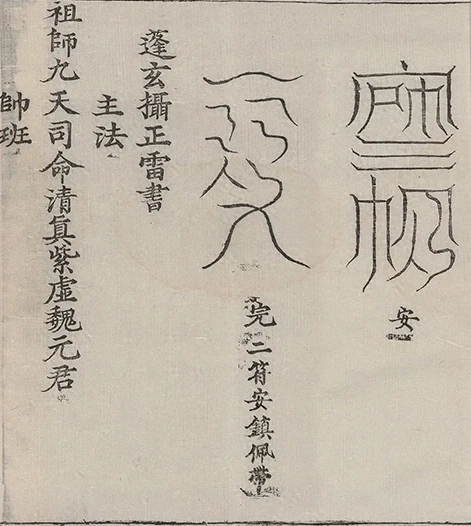 安
完二符安鎮佩帶
蓬玄攝正雷書
主法
祖師九天司命清眞紫虛魏元君
帥班